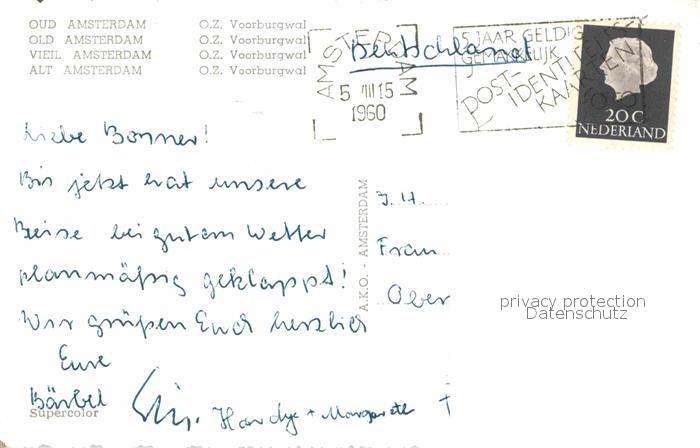 OUD AMSTERDAM O.Z. Voorburgwal
OLD AMSTERDAM O.Z. Voorburgwal
VIEIL AMSTERDAM O.Z. Voorburgwal
ALT AMSTERDAM O.Z. Voorburgwal
AMSTERDAM
5 VIII 15
1960
Deutschland
5 JAAR GELDIG
GEMAKKELIJK
POST-
IDENTITEITS
KAARTEN
20 C
NEDERLAND
Liebe Bonner!
Bis jetzt hat unsere
Reise bei gutem Wetter
planmäßig geklappt!
Wir grüßen Euch herzlich
Eure
Bärbel
Hardy + Margarete
Supercolor
A.K.O. - AMSTERDAM
Fran
Ober
privacy protection
Datenschutz